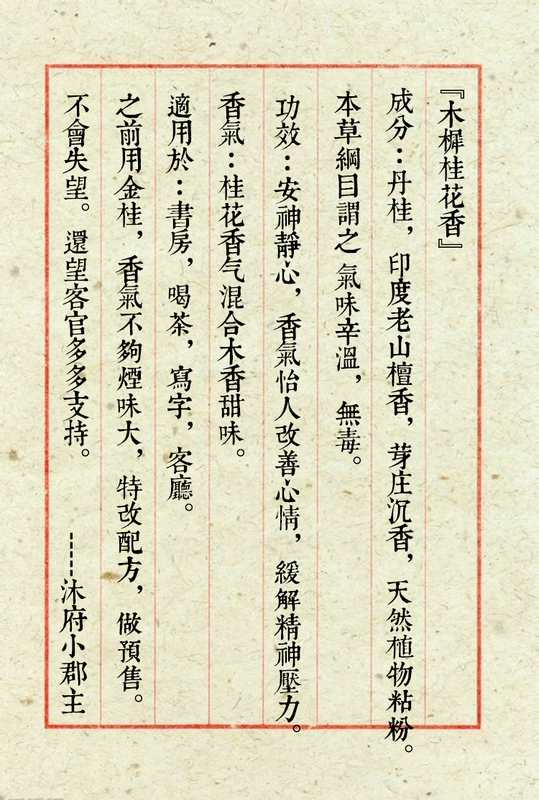 『木樨桂花香』
成分：丹桂，印度老山檀香，芽庄沉香，天然植物粘粉。
本草綱目謂之 氣味辛溫，無毒。
功效：安神靜心，香氣怡人改善心情，緩解精神壓力。
香氣：桂花香气混合木香甜味。
適用於：書房，喝茶，寫字，客廳。
之前用金桂，香氣不夠煙味大，特改配方，做預售。
不會失望。還望客官多多支持。 ------沐府小郡主